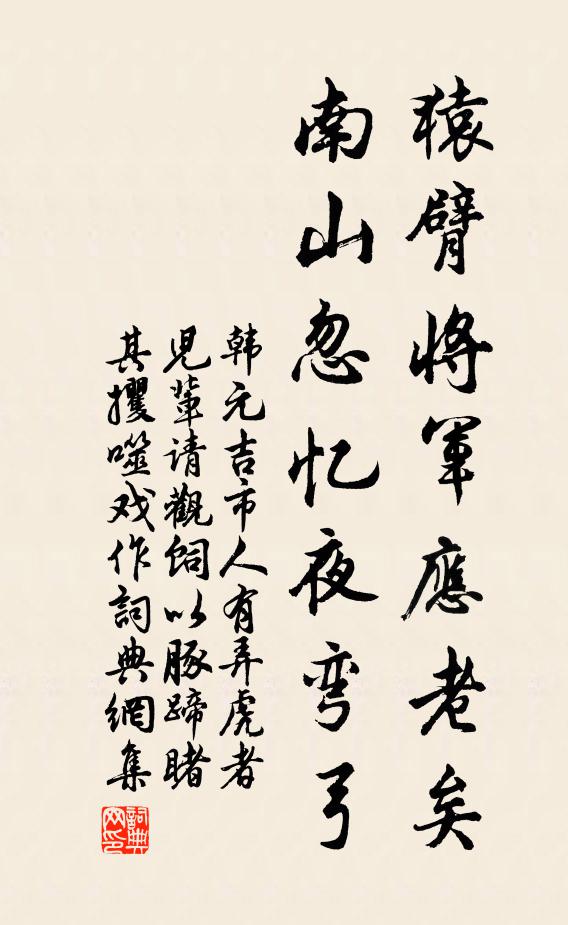 猿臂將軍應老矣
南山忽忆夜弯弓
韩元吉市人有弄虎者
児輩请觀飼以豚蹄睹
其攫噬戏作詞典網集
詞典
网印